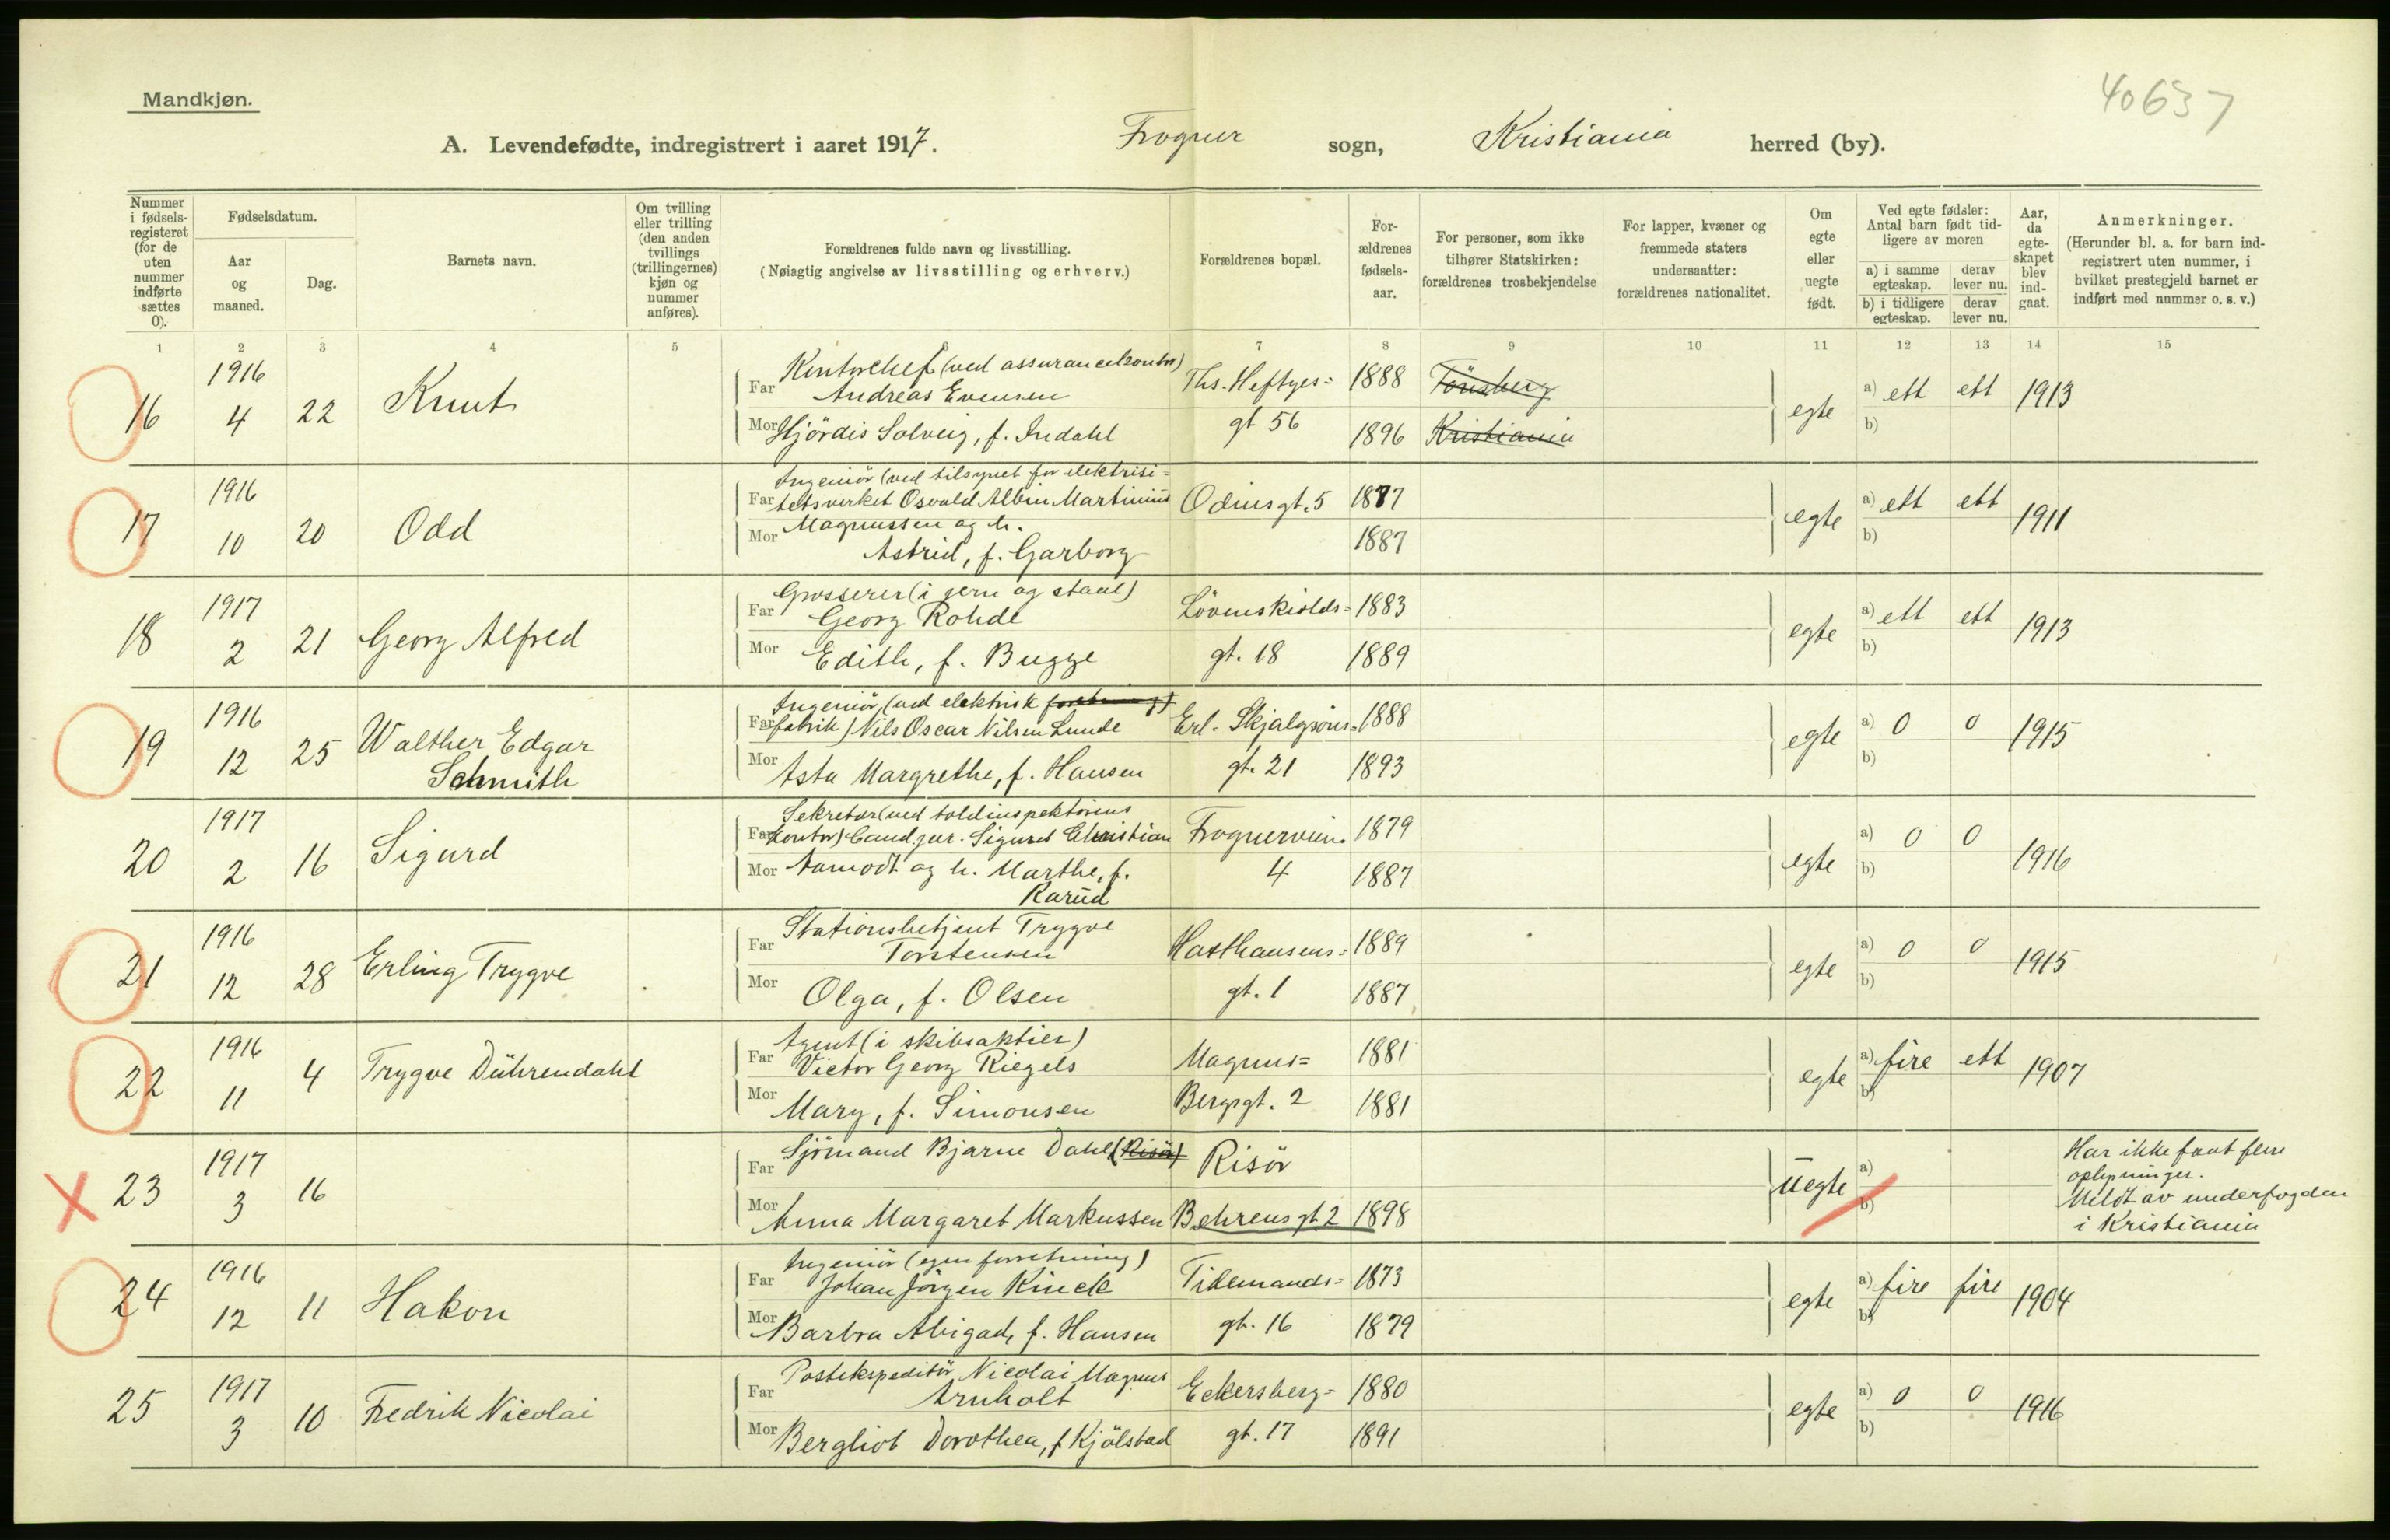 Mandkjøn.
40637
A. Levendefødte, indregistrert i aaret 1917. Frogner sogn, Kristiania herred (by).
Nummer i fødselsregisteret (for de uten nummer indførte sættes 0).
Fødselsdatum.
Aar og maaned.
Dag.
Barnets navn.
Om tvilling eller trilling (den anden tvillings (trillingernes) kjøn og nummer anføres).
Forældrenes fulde navn og livsstilling.
(Nøiagtig angivelse av livsstilling og erhverv.)
Forældrenes bopæl.
Forældrenes fødselsaar.
For personer, som ikke tilhører Statskirken: forældrenes trosbekjendelse
For lapper, kvæner og fremmede staters undersaatter: forældrenes nationalitet.
Om egte eller uegte født.
Ved egte fødsler: Antal barn født tidligere av moren
a) i samme egteskap.
derav lever nu.
b) i tidligere egteskap.
derav lever nu.
Aar, da egteskapet blev indgaat.
Anmerkninger.
(Herunder bl. a. for barn indregistrert uten nummer, i hvilket prestegjeld barnet er indført med nummer o. s. v.)
1 2 3 4 5 6 7 8 9 10 11 12 13 14 15
16 1916 4 22 Knut
Far Kontorchef (ved assurancekontor) Andreas Evensen Ths. Heftyes= 1888 Tönsberg
Mor Hjördis Solveig, f. Indahl gt 56 1896 Kristiania
egte a) ett ett 1913
b)
17 1916 10 20 Odd
Far Ingeniör (ved tilsynet for elektrisi=
tetsverket Osvald Albin Martinius Odinsgt. 5 1877
Mor Magnussen og h.
Astrid, f. Garborg 1887
egte a) ett ett 1911
b)
18 1917 2 21 Georg Alfred
Far Grosserer (i jern og staal)
Georg Rohde Lövenskiolds= 1883
Mor Edith, f. Bugge gt. 18 1889
egte a) ett ett 1913
b)
19 1916 12 25 Walther Edgar
Schmith
Far Ingeniör, (ved elektrisk
fabrik) Nils Oscar Nilsen Lunde Erl. Skjalgsöns= 1888
Mor Asta Margrethe, f. Hansen gt. 21 1893
egte a) 0 0 1915
b)
20 1917 2 16 Sigurd
Far Sekretær (ved toldinspektörens
kontor) Cand. jur. Sigurd Christian Frognerveien 1879
Mor Aamodt og h. Marthe, f.
Karud 4 1887
egte a) 0 0 1916
b)
21 1916 12 28 Erling Trygve
Far Stationsbetjent Trygve
Torstensen Hasthausens= 1889
Mor Olga, f. Olsen gt. 1 1887
egte a) 0 0 1915
b)
22 1916 11 4 Trygve Dührendahl
Far Agent (i skibsaktier)
Victor Georg Riegels Magnus= 1881
Mor Mary, f. Simonsen Bergsgt. 2 1881
egte a) fire ett 1907
b)
X 23 1917 3 16
Far Sjömand Bjarne Dahl (Risör) Risör
Mor Anna Margaret Markussen Behrensgt 2 1898
uegte a)
b)
Har ikke faat flere
oplysninger.
Meldt av underfogden
i Kristiania
24 1916 12 11 Hakon
Far Ingeniör (egen forretning)
Johan Jörgen Kinck Tidemands= 1873
Mor Barbra Abigael, f. Hansen gt. 16 1879
egte a) fire fire 1904
b)
25 1917 3 10 Fredrik Nicolai
Far Postekspeditör Nicolai Magnus
Arnholt Eckersberg= 1880
Mor Bergliot Dorothea, f. Kjölstad gt. 17 1891
egte a) 0 0 1916
b)